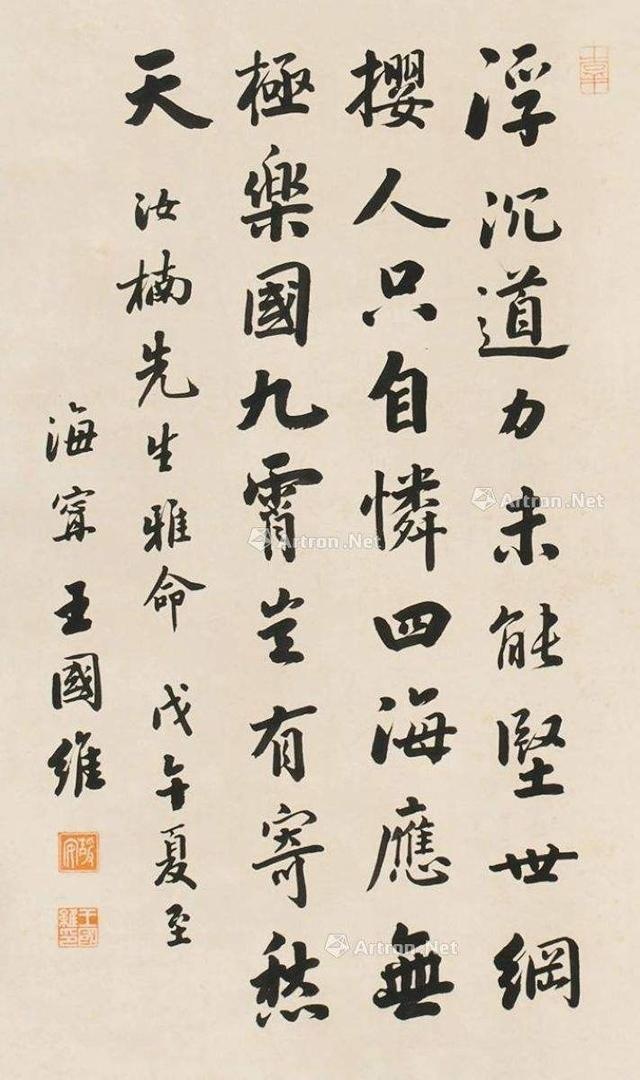 浮沉道力未能堅世網
攖人只自憐四海應無
極樂國九霄豈有寄愁
天
汝楠先生雅命 戊午夏至
海寧王國維
王國維印
Artron.Net
Artron.Net
Artron.Net